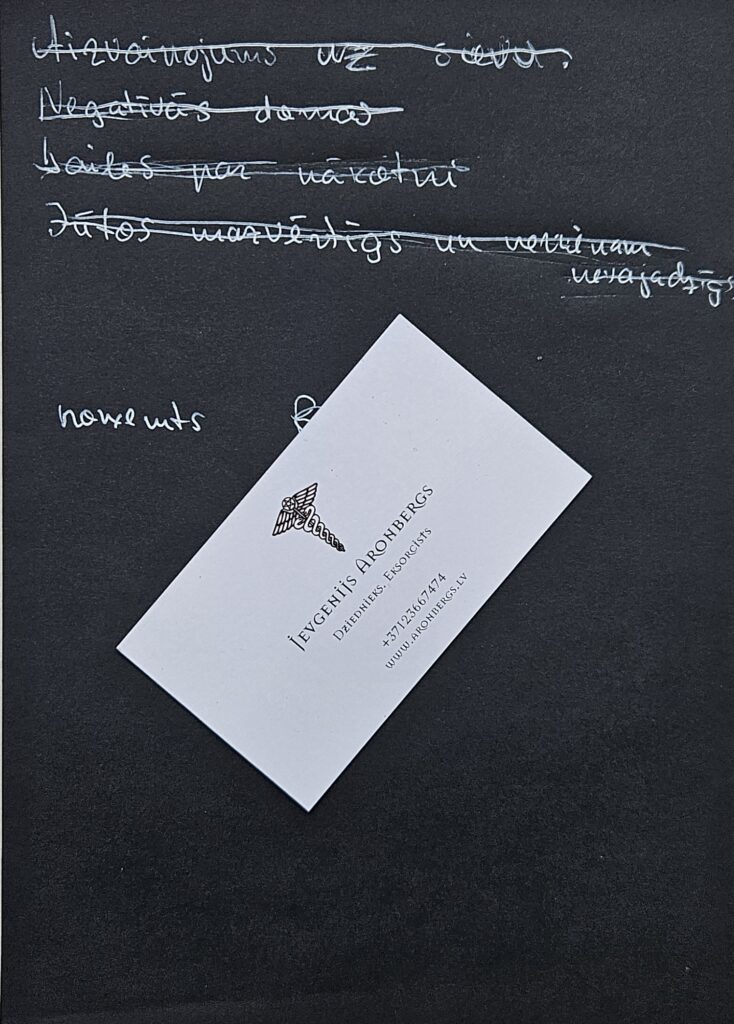 Aizvainojums uz sievu.
Negatīvās domas
Bailes par nākotni
Jūtos mazvērtīgs un nevienam
nevajadzīgs
noņemts
Jevgenijs Aronbergs
Dziednieks, Eksorcists
+37123667474
www.aronbergs.lv